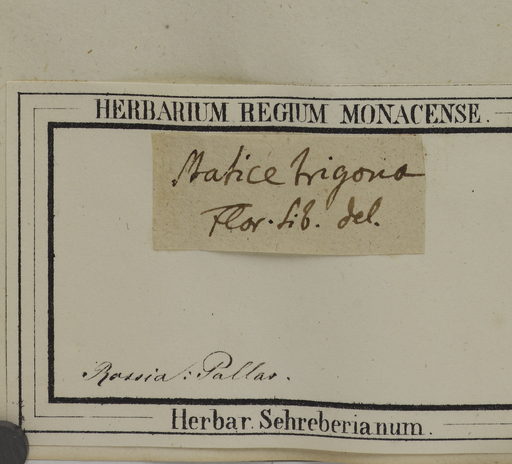 HERBARIUM REGIUM MONACENSE.
Statice trigona
Flor. Sib. del.
Rossia: Pallas.
Herbar. Schreberianum.